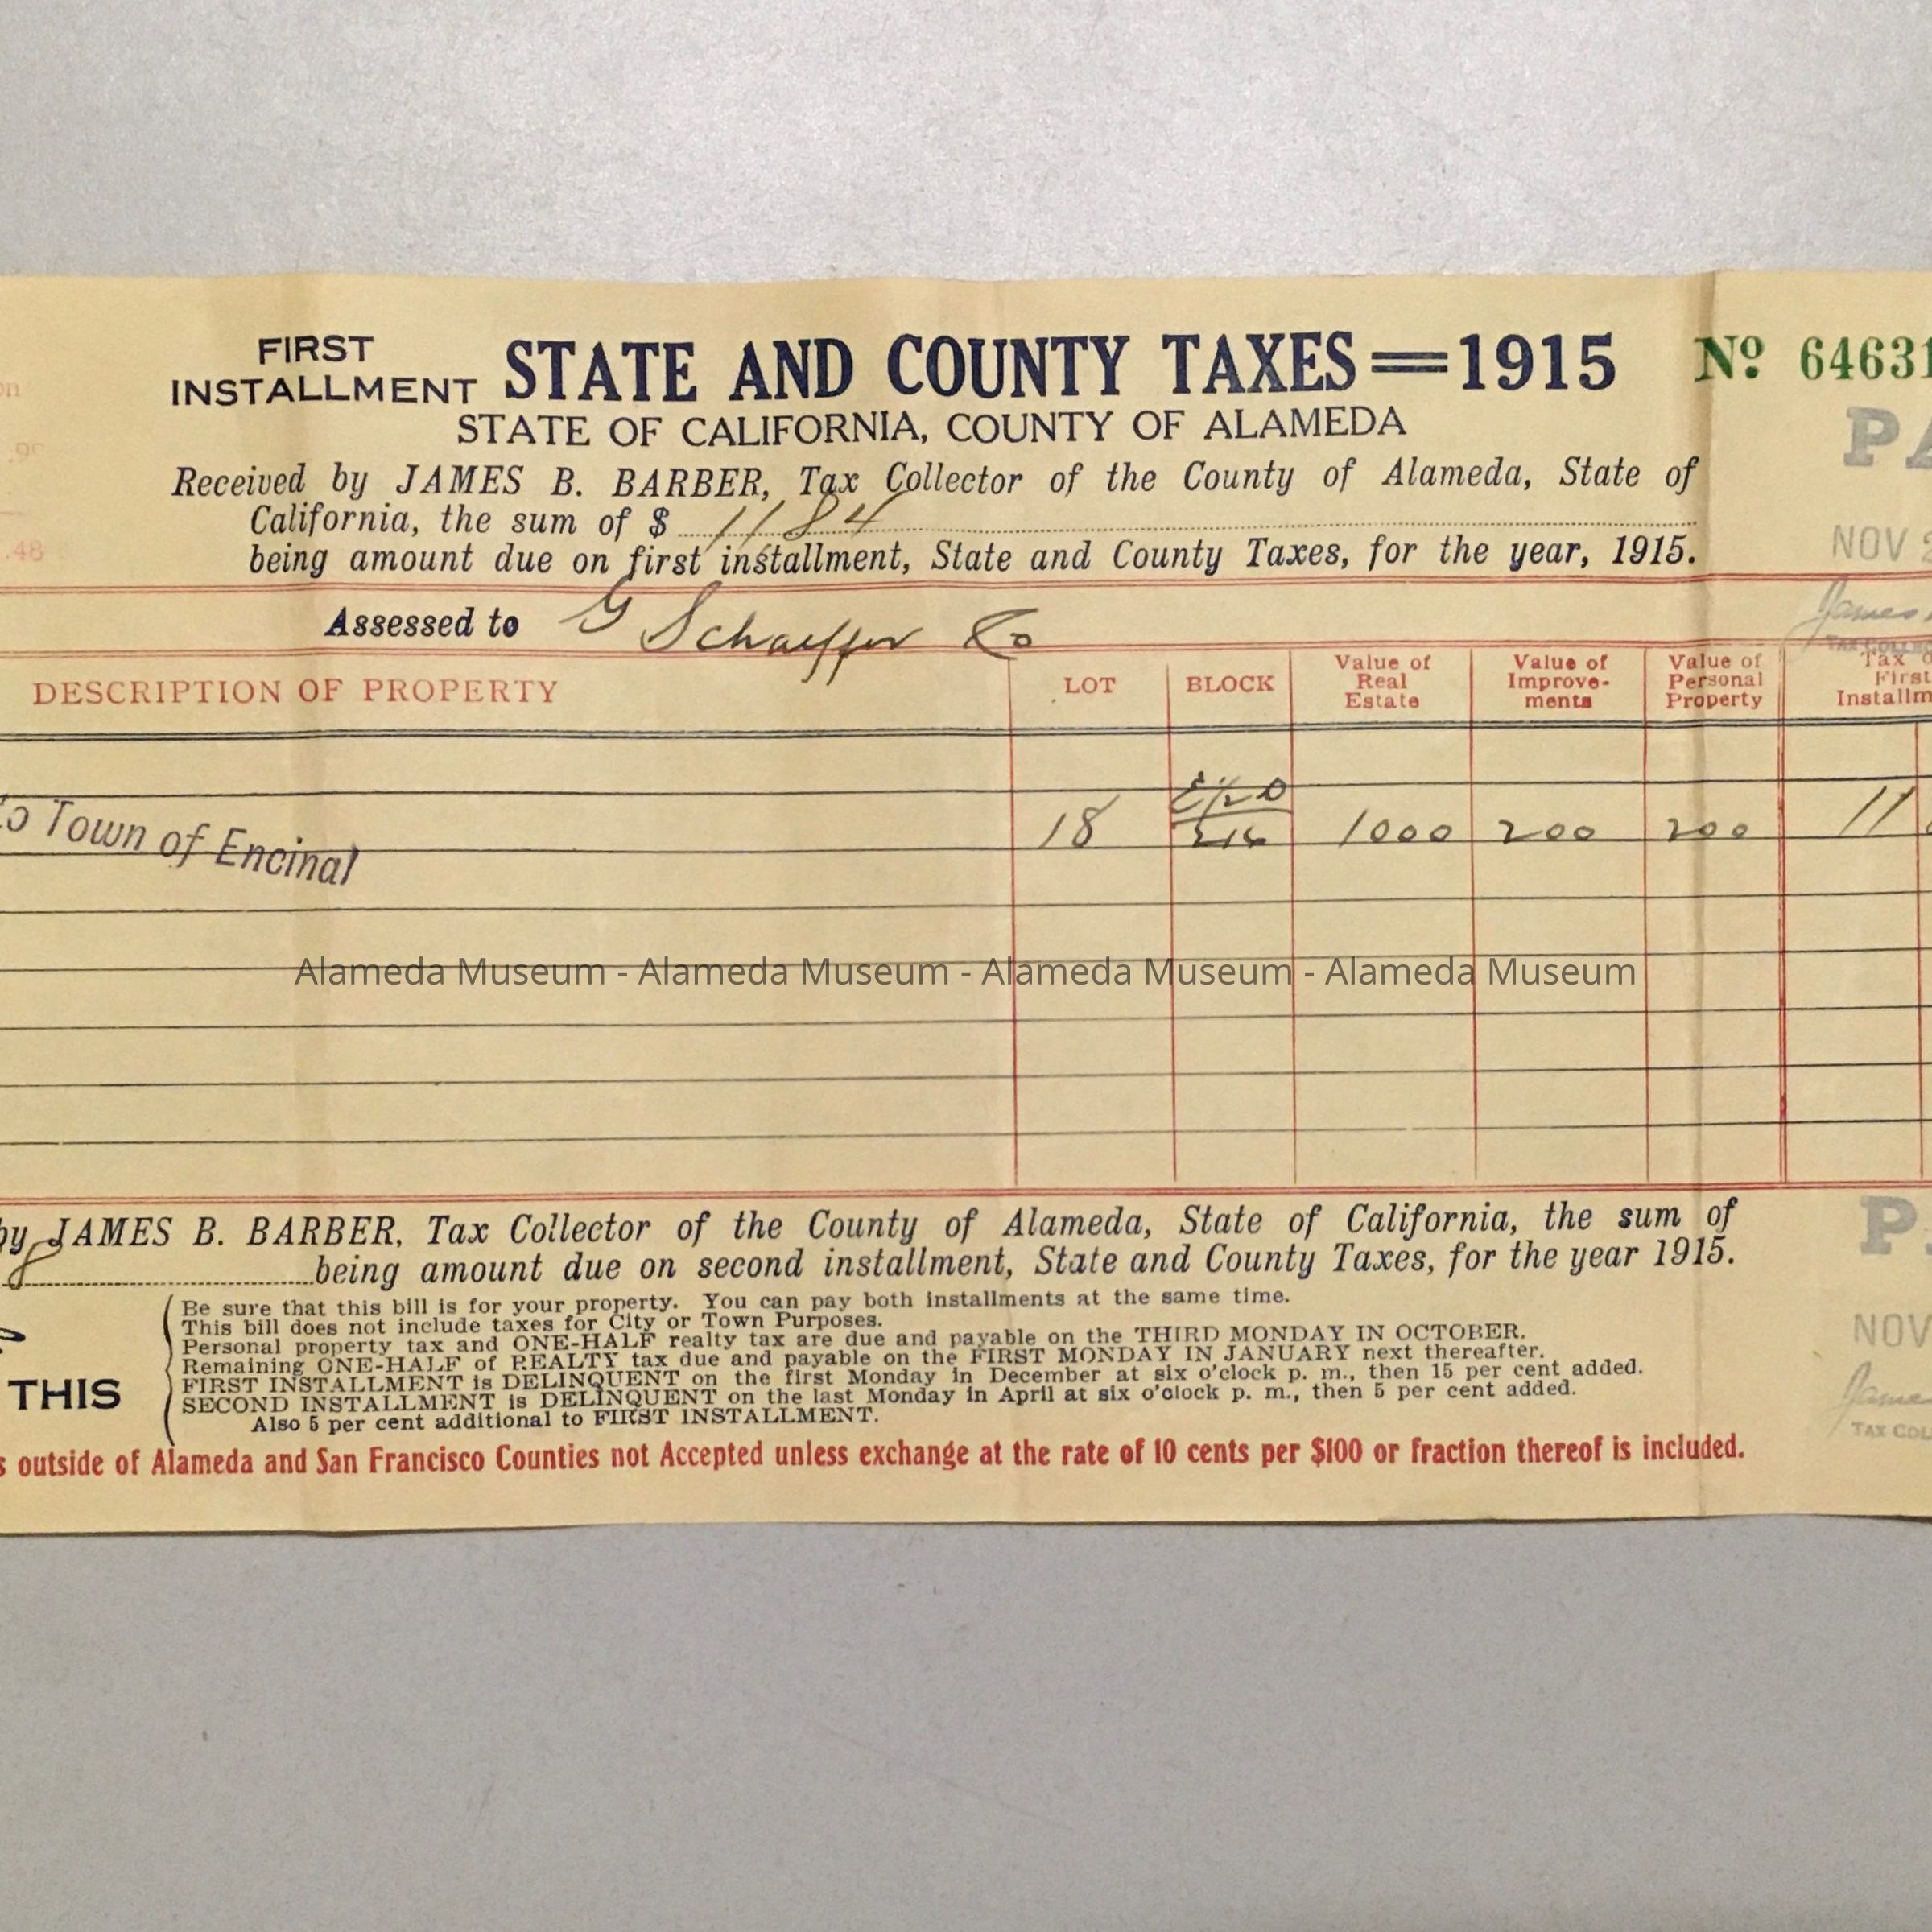 FIRST INSTALLMENT
STATE AND COUNTY TAXES=1915
Nº 64631
STATE OF CALIFORNIA, COUNTY OF ALAMEDA
PA
Received by JAMES B. BARBER, Tax Collector of the County of Alameda, State of
California, the sum of $ 11 84
being amount due on first installment, State and County Taxes, for the year, 1915.
.48
NOV
Assessed to G Schaeffer Co
James
TAX COLLEC
DESCRIPTION OF PROPERTY
LOT
BLOCK
Value of Real Estate
Value of Improve-ments
Value of Personal Property
Tax o First Installm
to Town of Encinal
18
1000
200
200
11
Alameda Museum - Alameda Museum - Alameda Museum - Alameda Museum
by JAMES B. BARBER, Tax Collector of the County of Alameda, State of California, the sum of
8 being amount due on second installment, State and County Taxes, for the year 1915.
P
Be sure that this bill is for your property. You can pay both installments at the same time.
This bill does not include taxes for City or Town Purposes.
Personal property tax and ONE-HALF realty tax are due and payable on the THIRD MONDAY IN OCTOBER.
Remaining ONE-HALF of REALTY tax due and payable on the FIRST MONDAY IN JANUARY next thereafter.
FIRST INSTALLMENT is DELINQUENT on the first Monday in December at six o'clock p. m., then 15 per cent added.
SECOND INSTALLMENT is DELINQUENT on the last Monday in April at six o'clock p. m., then 5 per cent added.
Also 5 per cent additional to FIRST INSTALLMENT.
THIS
NOV
James
TAX COL
s outside of Alameda and San Francisco Counties not Accepted unless exchange at the rate of 10 cents per $100 or fraction thereof is included.